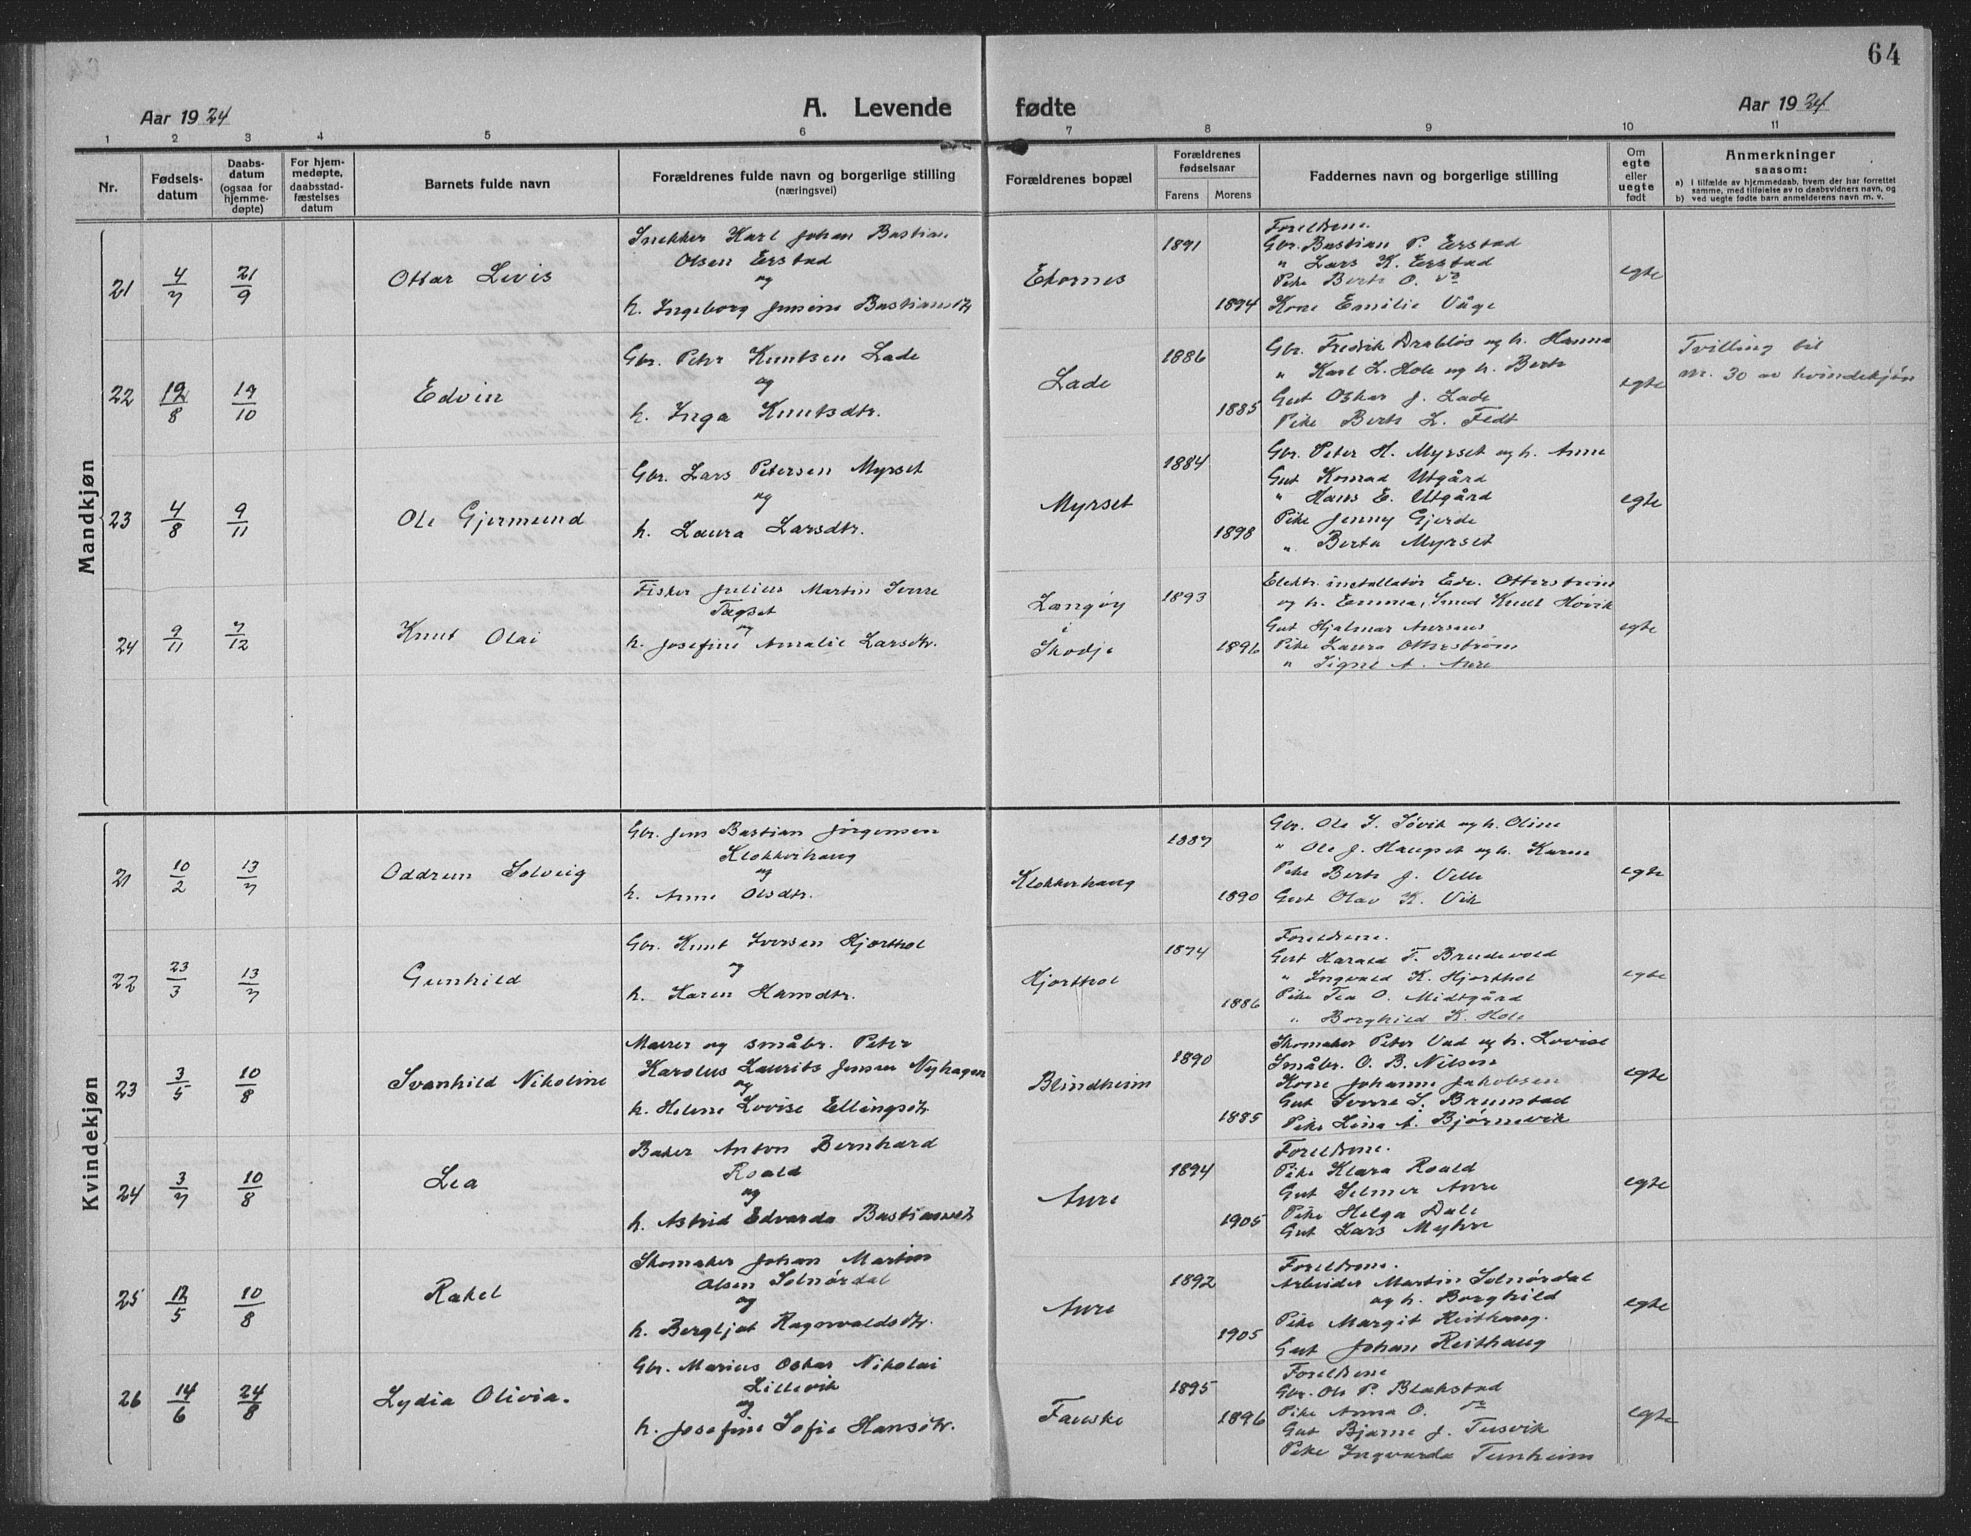 64
Aar 1924 A. Levende fødte Aar 1924
1 2 3 4 5 6 7 8 9 10 11
Nr. Fødsels-datum Daabs-datum (ogsaa for hjemme-døpte) For hjem-medøpte, daabsstad-fæstelses datum Barnets fulde navn Forældrenes fulde navn og borgerlige stilling (næringsvei) Forældrenes bopæl Forældrenes fødselsaar Farens Morens Faddernes navn og borgerlige stilling Om egte eller uegte født Anmerkninger saasom:
a) i tilfælde av hjemmedaab, hvem der har forrettet samme, med tilføielse av to daabsvidners navn, og
b) ved uegte fødte barn anmelderens navn m. v.
Mandkjøn
21 4/7 21/9 Ottar Levis
Snekker Karl Johan Bastian
Olsen Erstad
og
h. Ingeborg Jensine Bastiansdtr
Ekornes
1891
1894
Foreldrene.
Gbr. Bastian P. Erstad
" Lars K. Erstad
Pike Berte O. do
Kone Emilie Våge
egte
22 12/8 19/10 Edvin
Gbr. Peter Knutsen Lade
og
h. Inga Knutsdtr.
Lade
1886
1885
Gbr. Fredrik Drabløs og h. Hanna
" Karl L. Hole og h. Berte
Gut Oskar J. Lade
Pike Berte L. Fedt
egte
Tvilling til
nr. 30 av kvindekjøn
23 4/8 9/11 Ole Gjermund
Gbr. Lars Petersen Myrset
og
h. Laura Larsdtr.
Myrset
1884
1898
Gbr. Peter H. Myrset og h. Anne
Gut Konrad Utgård
" Hans E. Utgård
Pike Jenny Gjerde
" Berta Myrset
egte
24 9/11 7/12 Knut Olai
Fisker Julius Martin Sverre
Tagset
og
h. Josefine Amalie Larsdtr.
Langøy
i
Skodje
1893
1896
Elektr. installatør Edv. Otterstrøm
og h. Emma, Smed Knut Høvik
Gut Hjalmar Aursnes
Pike Laura Otterstrøm
" Signe A. Aure
egte
Kvindekjøn
21 10/2 13/7 Oddrun Solveig
Gbr. Jens Bastian Jørgensen
Klokkerhaug
og
h. Anne Olsdtr.
Klokkerhaug
1887
1890
Gbr. Ole I. Søvik og h. Oline
" Ole J. Haugset og h. Karen
Pike Berte J. Velle
Gut Olav K. Vik
egte
22 23/3 13/7 Gunhild
Gbr. Knut Iversen Hjorthol
og
h. Karen Hansdtr.
Hjorthol
1874
1886
Foreldrene.
Gut Harald T. Brudevold
" Ingvald K. Hjorthol
Pike Tea O. Midtgård
" Borghild K. Hole
egte
23 3/5 10/8 Svanhild Nikoline
Murer og småbr. Peter
Karolus Laurits Jensen Nyhagen
og
h. Helene Lovise Ellingsdtr.
Blindheim
1890
1885
Skomaker Peter Uad og h. Lovise
Småbr. O. B. Nilsen
Kone Johanne Jakobsen
Gut Sverre S. Brunstad
Pike Lina A. Bjørnevik
egte
24 3/7 10/8 Lea
Baker Anton Bernhard
Roald
og
h. Astrid Edvarda Bastiansdtr
Aure
1894
1905
Foreldrene.
Pike Klara Roald
Gut Selmer Aure
Pike Helga Dale
Gut Lars Myhre
egte
25 12/5 10/8 Rakel
Skomaker Johan Martin
Olsen Solnørdal
og
h. Bergljot Ragnvaldsdtr.
Aure
1892
1905
Foreldrene.
Arbeider Martin Solnørdal
og h. Borghild
Pike Margit Reithaug.
Gut Johan Reithaug
egte
26 14/6 24/8 Lydia Olivia.
Gbr. Marius Oskar Nikolai
Lillevik
og
h. Josefine Sofie Hansdtr.
Fauske
1895
1896
Foreldrene
Gbr. Ole P. Blakstad
Pike Anna O. do
Gut Bjarne J. Tusvik
Pike Ingvarda Tunheim
egte